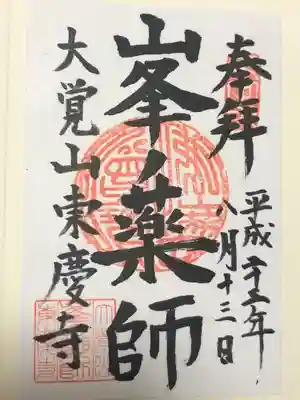 奉拝
平成二十二年
八月十三日
峯薬師
大覚山東慶寺